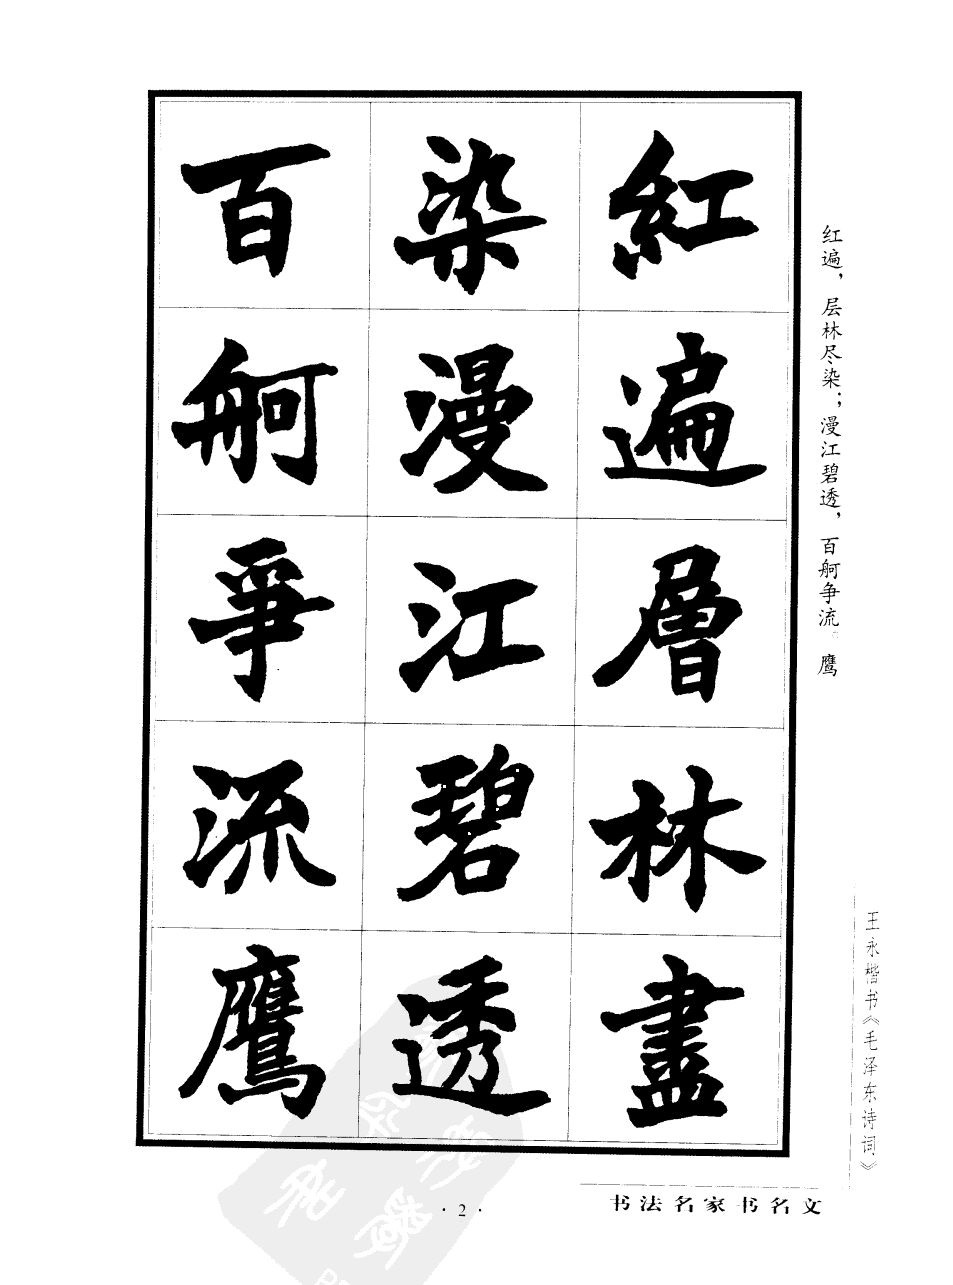 紅遍層林盡
染漫江碧透
百舸爭流鷹
红遍，层林尽染；漫江碧透，百舸争流。鹰
王永楷书《毛泽东诗词》
书法名家书名文
·2·